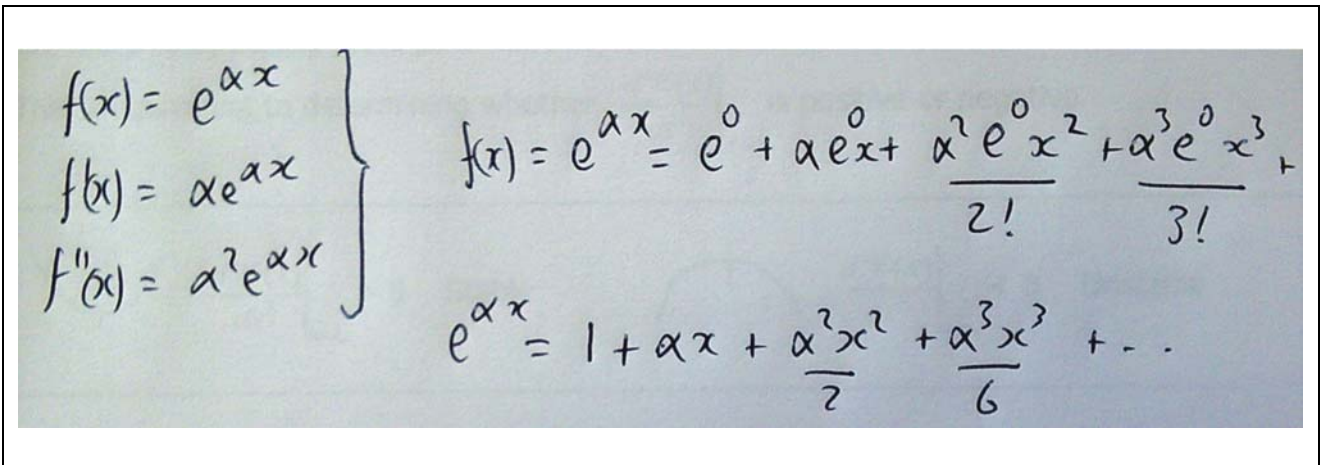 f(x) = e^{αx}
f'(x) = αe^{αx}
f''(x) = α²e^{αx}
f(x) = e^{αx} = e⁰ + αe⁰x + α²e⁰x²/2! + α³e⁰x³/3! +
e^{αx} = 1 + αx + α²x²/2 + α³x³/6 + ...